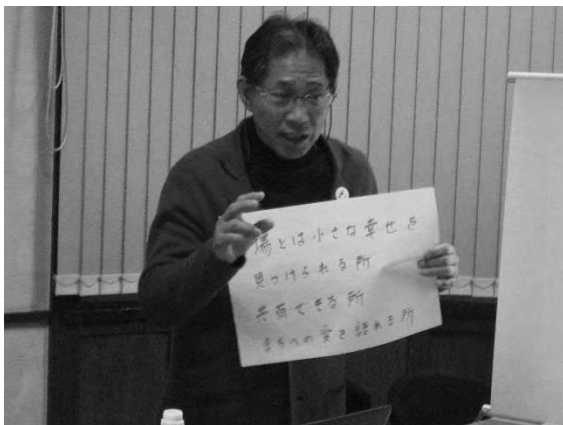 場とは小さな幸せを
見つけられる所
共有できる所
まちへの愛を語れる所